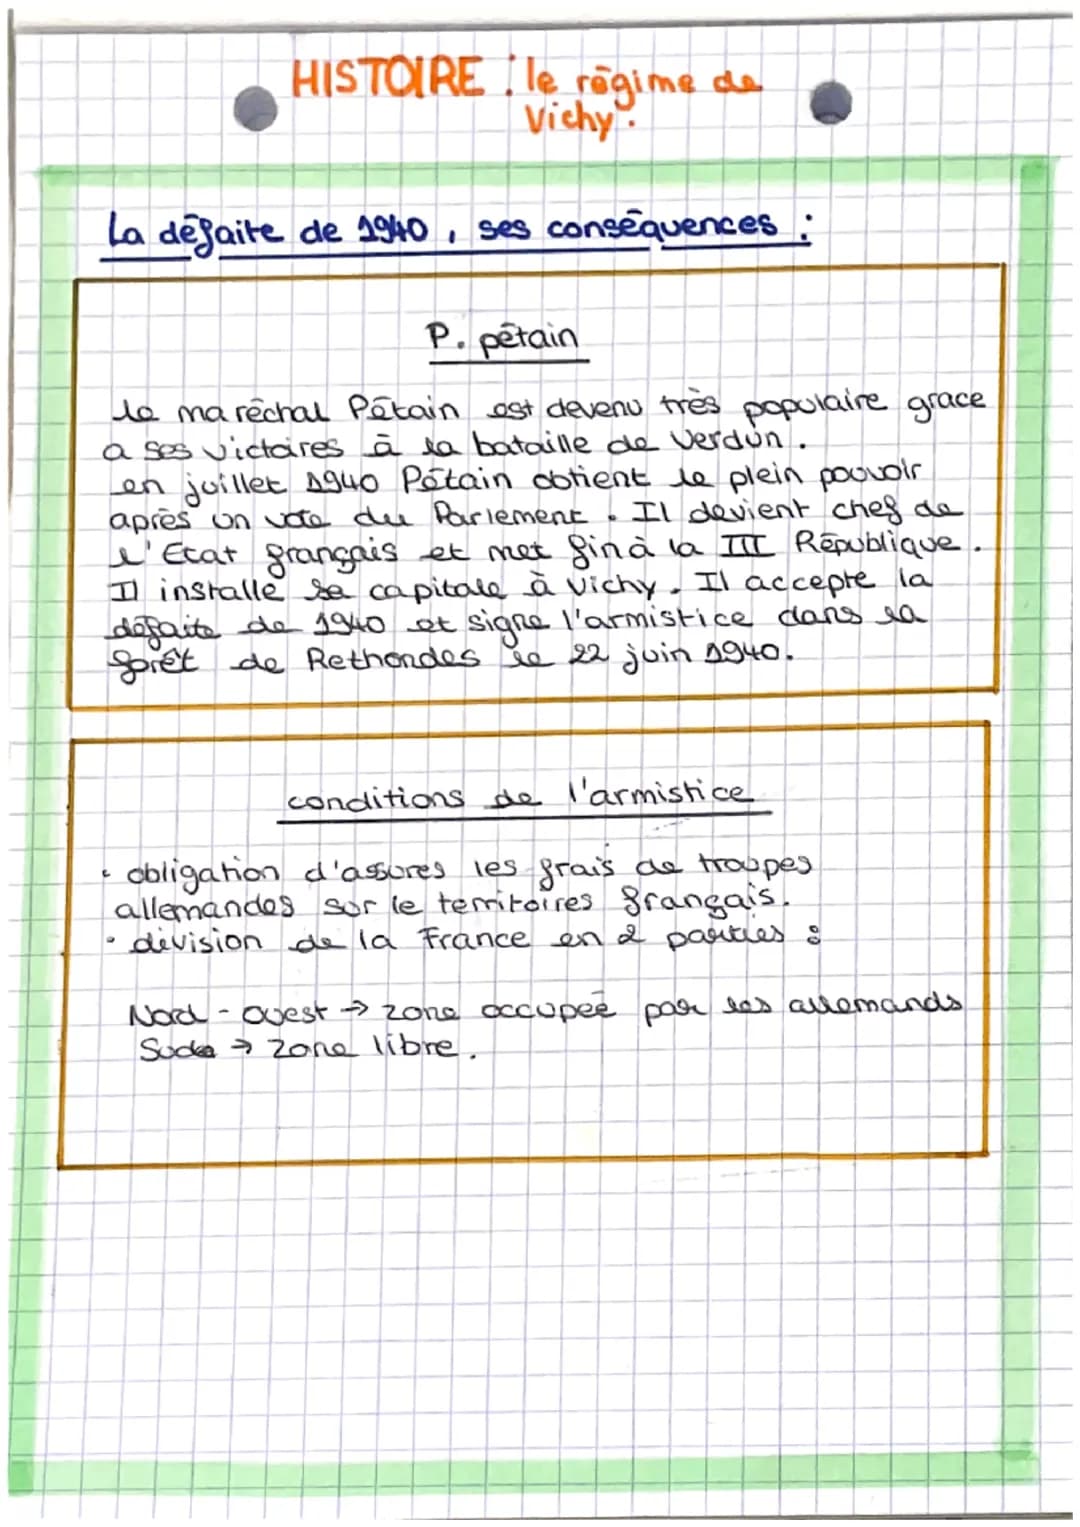 HISTOIRE : le régime de
Vichy.
La défaite de 1940, ses conséquences :
P. pétain
le maréchal Pétain est devenu très populaire grace
a ses victoires à la bataille de Verdun.
en juillet 1940 Pétain obtient le plein pouvoir
après un vote du Parlement. Il devient chef de
l'Etat français et met fin à la III République.
Il installe sa capitale à Vichy. Il accepte la
défaite de 1940 et signe l'armistice dans la
forêt de Rethondes le 22 juin 1940.
conditions de l'armistice
• obligation d'assures les frais de troupes
allemandes sur le territoires français.
• division de la France en 2 parties :
Nord-ouest → zone occupée par les allemands
Sud → zone libre.